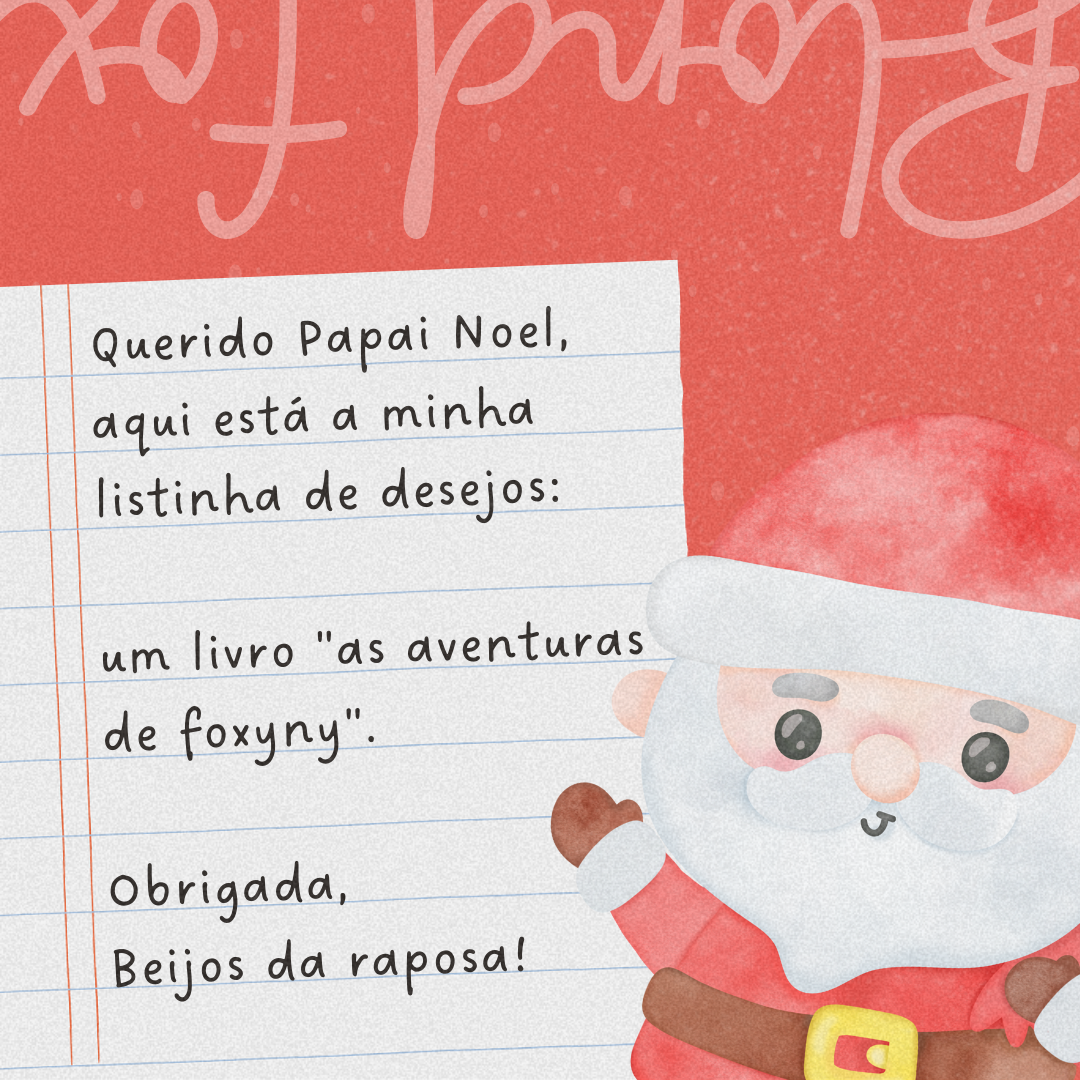 Querido Papai Noel,
aqui está a minha
listinha de desejos:
um livro "as aventuras
de foxyny".
Obrigada,
Beijos da raposa!